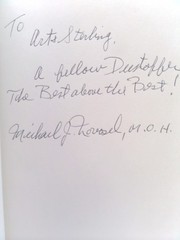 To
Arts Sterling.
A fellow Dustoffer
The Best above the Best!
Michael J. Novosel, M.O.H.